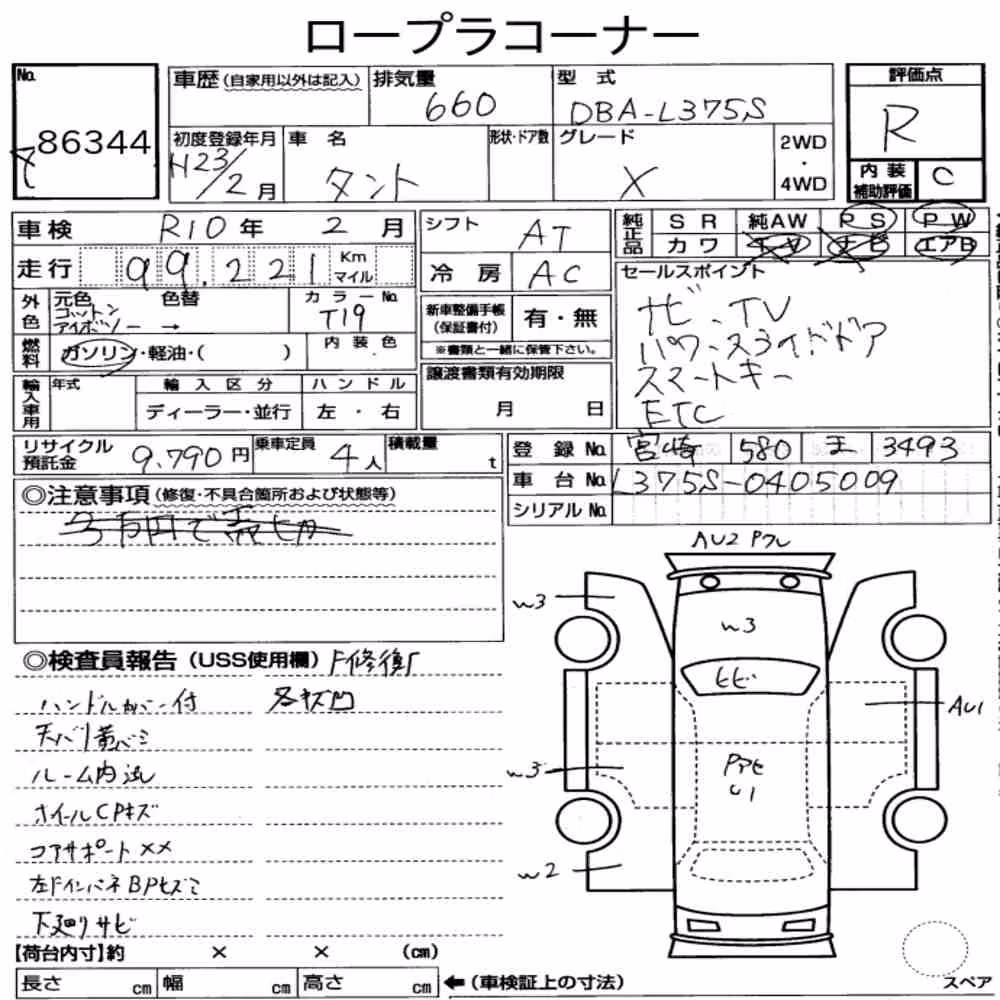 ロープラコーナー
No. 86344
車歴(自家用以外は記入) 排気量 660 型式 DBA-L375S 評価点 R
初度登録年月 H23/2月 車名 タント 形状・ドア数 グレード X 2WD・4WD 内装補助評価 C
車検 R10年 2月 シフト AT 純正品 SR 純AW PS PW
カワ TV ナビ エアB
走行 99,221 Km マイル 冷房 AC セールスポイント
外色 元色 色替 カラーNo. T19 新車整備手帳(保証書付) 有・無 ナビ、TV
コットン
アイボリー → ※書類と一緒に保管下さい。 パワースライドドア
燃料 ガソリン・軽油・( ) 内装色 譲渡書類有効期限 スマートキー
輸入車用 年式 輸入区分 ハンドル 月 日 ETC
ディーラー・並行 左・右
リサイクル預託金 9,790円 乗車定員 4人 積載量 t 登録No. 宮崎 580 ま 3493
車台No. L375S-0405009
◎注意事項(修復・不具合箇所および状態等) シリアルNo.
3万円で売切
AU2 Pクレ
W3
W3
◎検査員報告(USS使用欄) F修復
ハンドルカバー付 各キズ凹
ヒビ
AU1
天バリ黄バミ
ルーム内汚
W3
U1
ホイールCPキズ
コアサポート××
W2
下廻りサビ
【荷台内寸】約 × × (cm)
長さ cm 幅 cm 高さ cm ←(車検証上の寸法) スペア